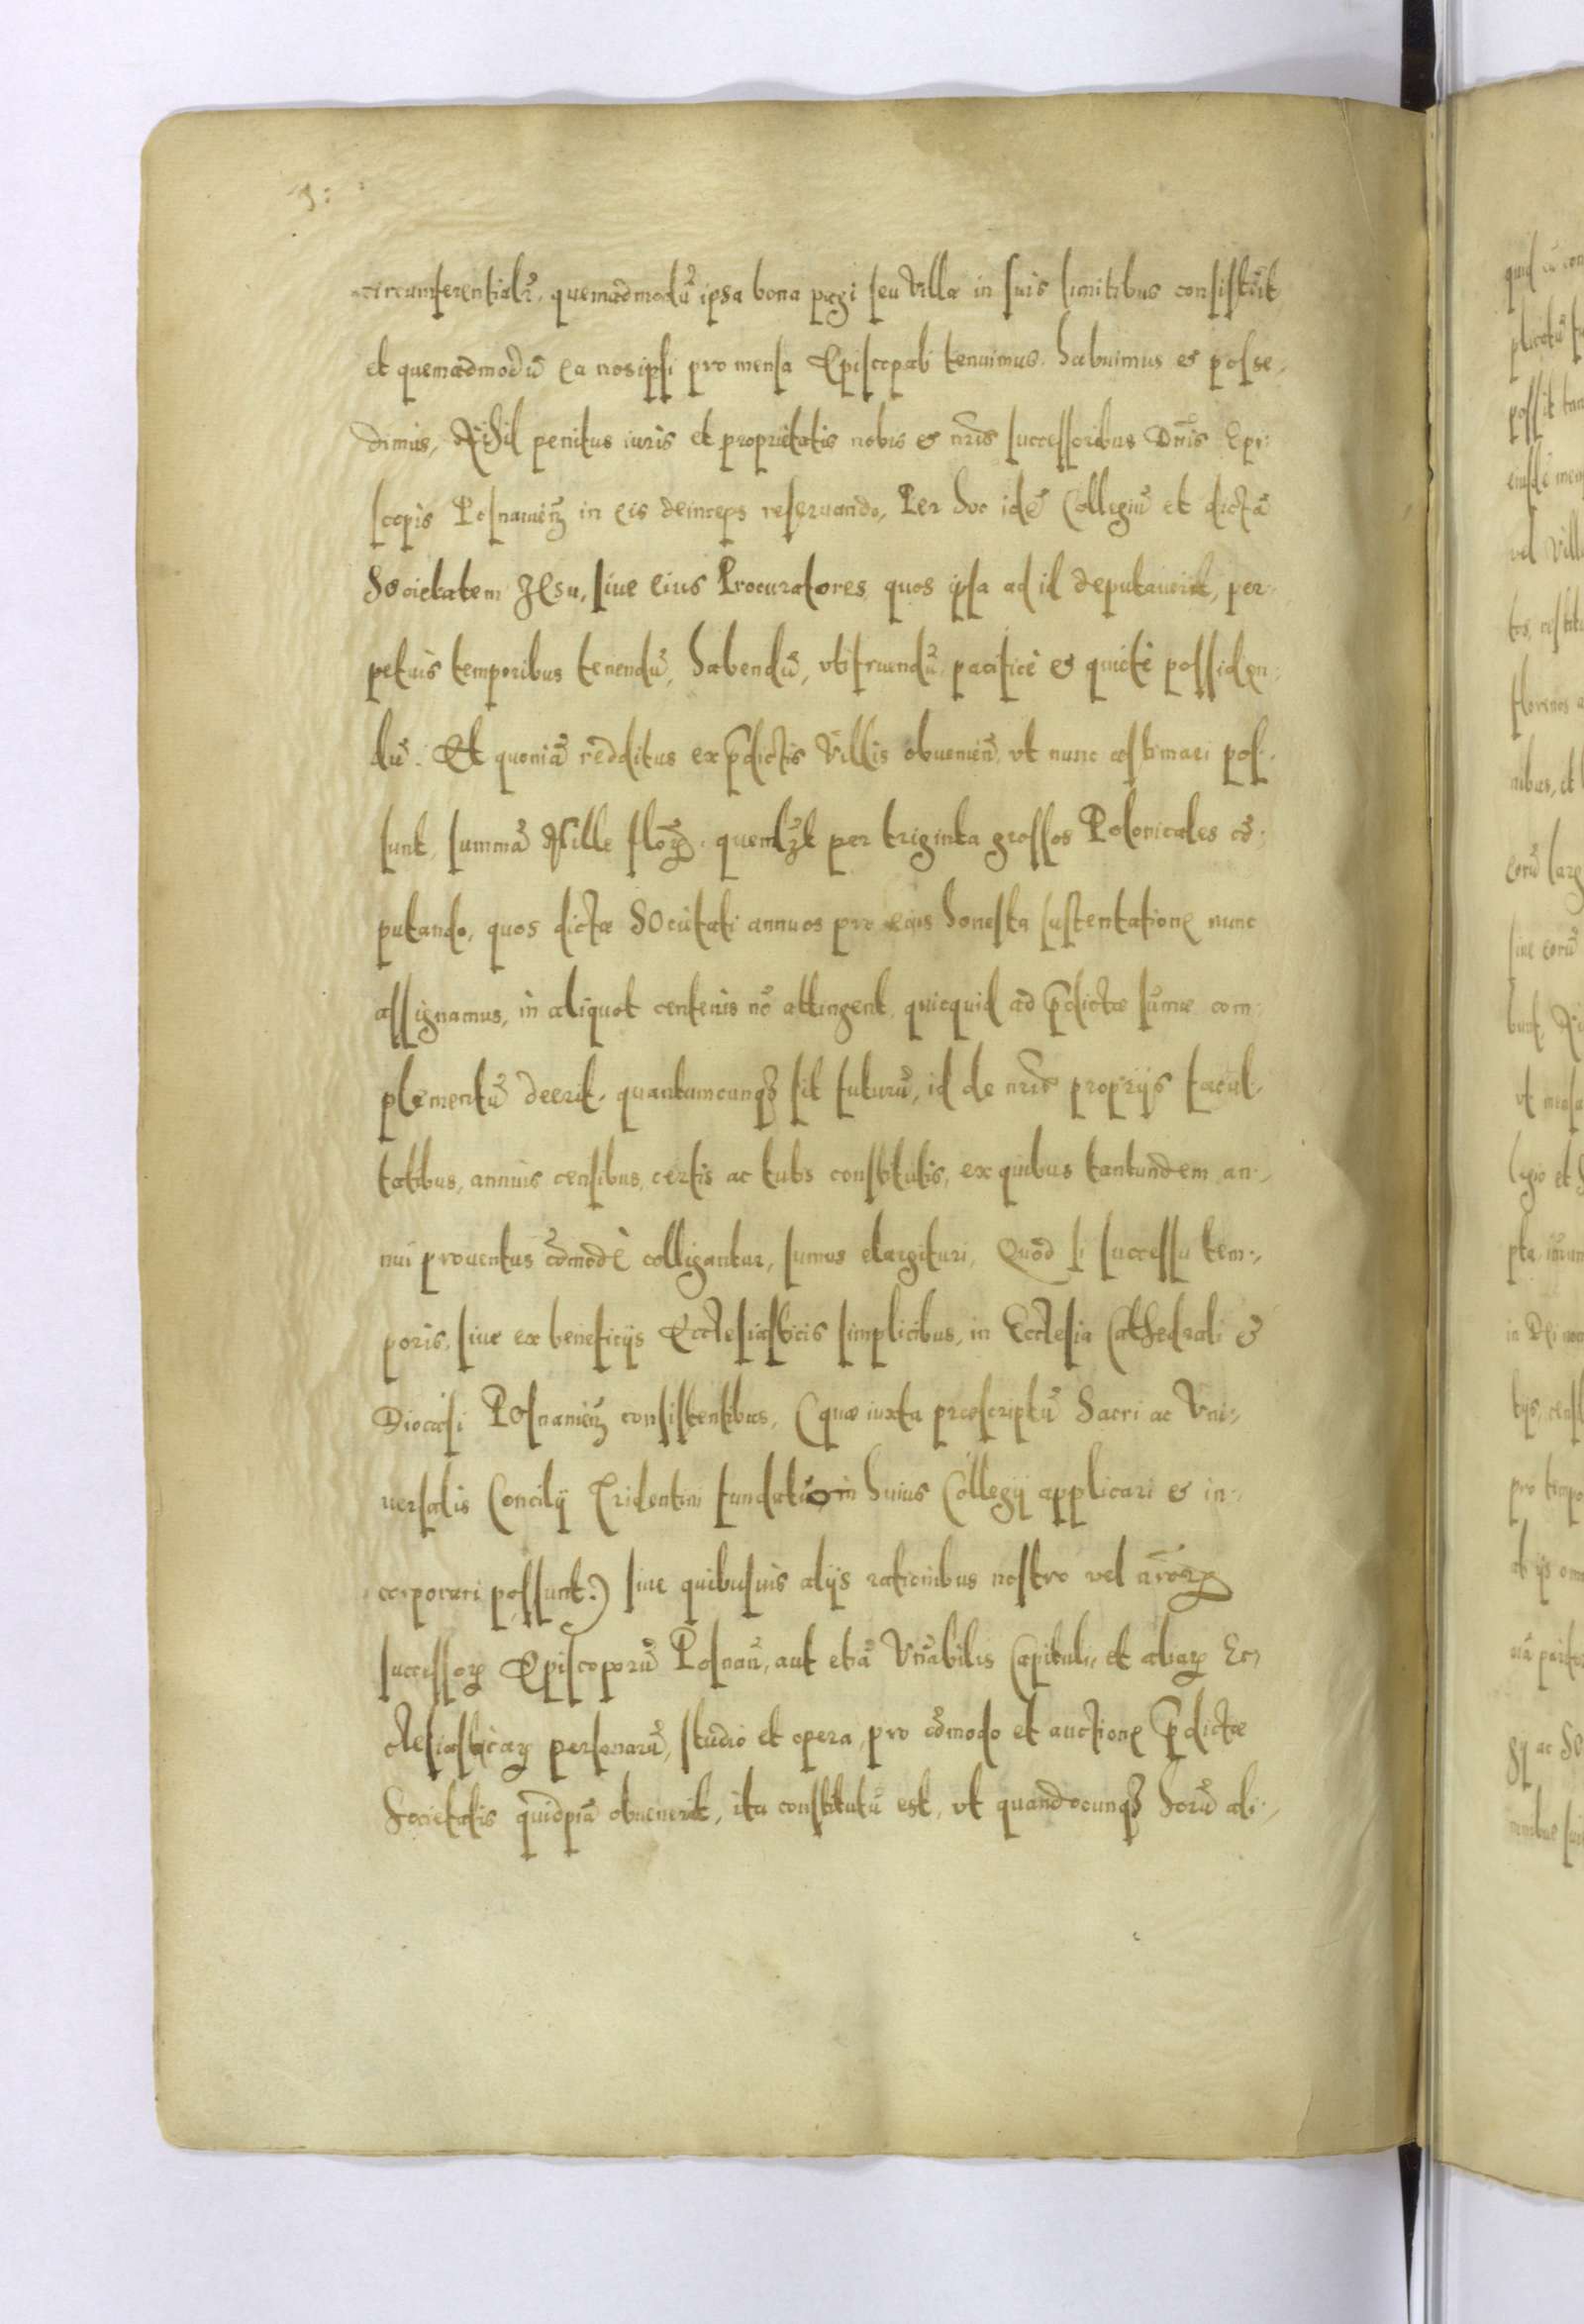 circumferentialr̃, quemadmodũ ipsa bona pagi seu Villæ in suis limitibus consistũt,
et quemadmodũ ea nos ipsi pro mensa Episcopali tenuimus, habuimus & posse-
dimus, Nihil penitus iuris et proprietatis nobis & nr̃is successoribus Dñis Epi-
scopis Posnanieñ in eis deinceps reseruando, Per hoc idẽ Collegiũ et dictã
Societatem Jesu, siue eius Procuratores quos ipsa ad id deputauerit, per-
petuis temporibus tenendũ, habendũ, vtifruendũ, pacificè & quietè possiden-
dũ. Et quoniã redditus ex p̃dictis Villis obuenieñ, vt nunc æstimari pos-
sunt, summã Mille floꝝ, quemlꝫt per triginta grossos Polonicales cõ-
putando, quos dictæ Societati annuos pro eius honesta sustentatione nunc
assignamus, in aliquot centenis nõ attingent, quicquid ad p̃dictæ sum̃æ com-
plementũ deerit, quantumcunqꝫ sit futurũ, id de nr̃is proprijs facul-
tatibus, annuis censibus, certis ac tutis constitutis, ex quibus tantundem an-
nui prouentus cõmodè colligantur, sumus elargituri, Quòd si successu tem-
poris, siue ex beneficijs Ecclesiasticis simplicibus, in Ecclesia Cathedrali &
Diocæsi Posnanieñ consistentibus, (quæ iuxta præscriptũ Sacri ac Vni-
uersalis Concilij Tridentini fundationi huius Collegij applicari & in-
corporari possunt:) siue quibusuis alijs rationibus nostro vel nr̃oꝝ
successoꝝ Episcoporũ Posnañ, aut etiã Vñabilis Capituli, et aliaꝝ Ec-
clesiasticaꝝ personarũ, studio et opera, pro cõmodo et auctione p̃dictæ
Societatis quidpiã obuenerit, ita constitutũ est, vt quandocunqꝫ horũ ali-